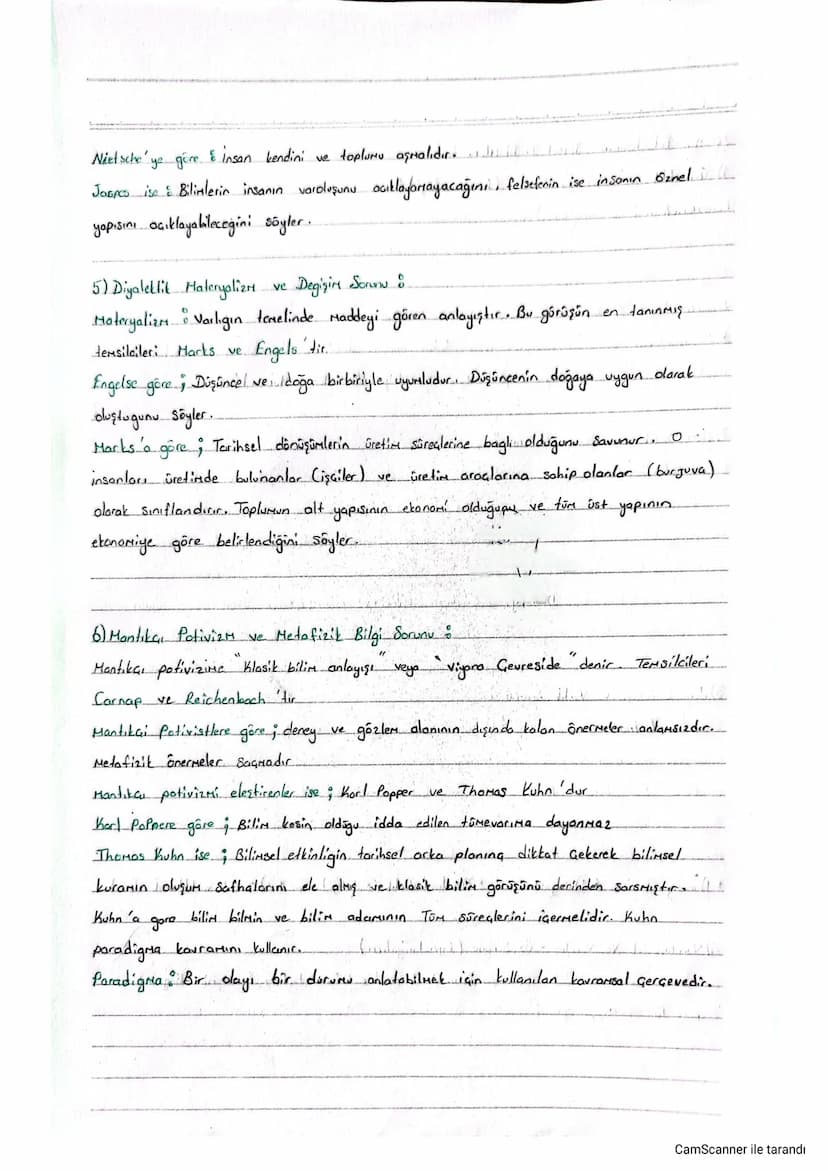 Nietsche'ye göre : İnsan kendini ve toplumu aşmalıdır.
Jaspes ise : Bilimlerin insanın varoluşunu açıklayamayacağını, felsefenin ise insanın öznel
yapısını açıklayabileceğini söyler.
5) Diyalektik Materyalizm ve Değişim Sorunu :
Materyalizm : Varlıgın temelinde maddeyi gören anlayıştır. Bu görüşün en tanınmış
temsilcileri Marks ve Engels'tir.
Engelse göre ; Düşüncel ve doğa birbiriyle uyumludur. Düşüncenin doğaya uygun olarak
oluştugunu söyler.
Marks'a göre ; Tarihsel dönüşümlerin üretim süreçlerine baglı olduğunu savunur. O
insanları üretimde bulunanlar (işçiler) ve üretim araçlarına sahip olanlar (burjuva)
olarak sınıflandırır. Toplumun alt yapısının ekonomi olduğunu ve tüm üst yapının
ekonomiye göre belirlendiğini söyler.
6) Mantıkçı Potivizm ve Metafizik Bilgi Sorunu :
Mantıkçı potivizime "Klasik bilim anlayışı" veya "Viyana Çevreside" denir. Temsilcileri
Carnap ve Reichenbach'tir
Mantıkçi Potivistlere göre ; deney ve gözlem alanının dışında kalan önermeler anlamsızdır.
Metafizik önermeler saçmadır
Mantıkcı potivizmi eleştirenler ise ; Karl Popper ve Thomas Kuhn'dur
Karl Poppere göre ; Bilim kesin olduğu idda edilen tümevarıma dayanmaz
Thomas Kuhn ise ; Bilimsel etkinligin tarihsel arka planına dikkat çekerek bilimsel
kuramın oluşum safhalarını ele almış ve klasik bilim görüşünü derinden sarsmıştır.
Kuhn'a gore bilim bilmin ve bilim adamının Tüm süreçlerini içermelidir. Kuhn
paradigma kavramını kullanır.
Paradigma : Bir olayı bir durumu anlatabilmek için kullanılan kavramsal çerçevedir.
CamScanner ile tarandı